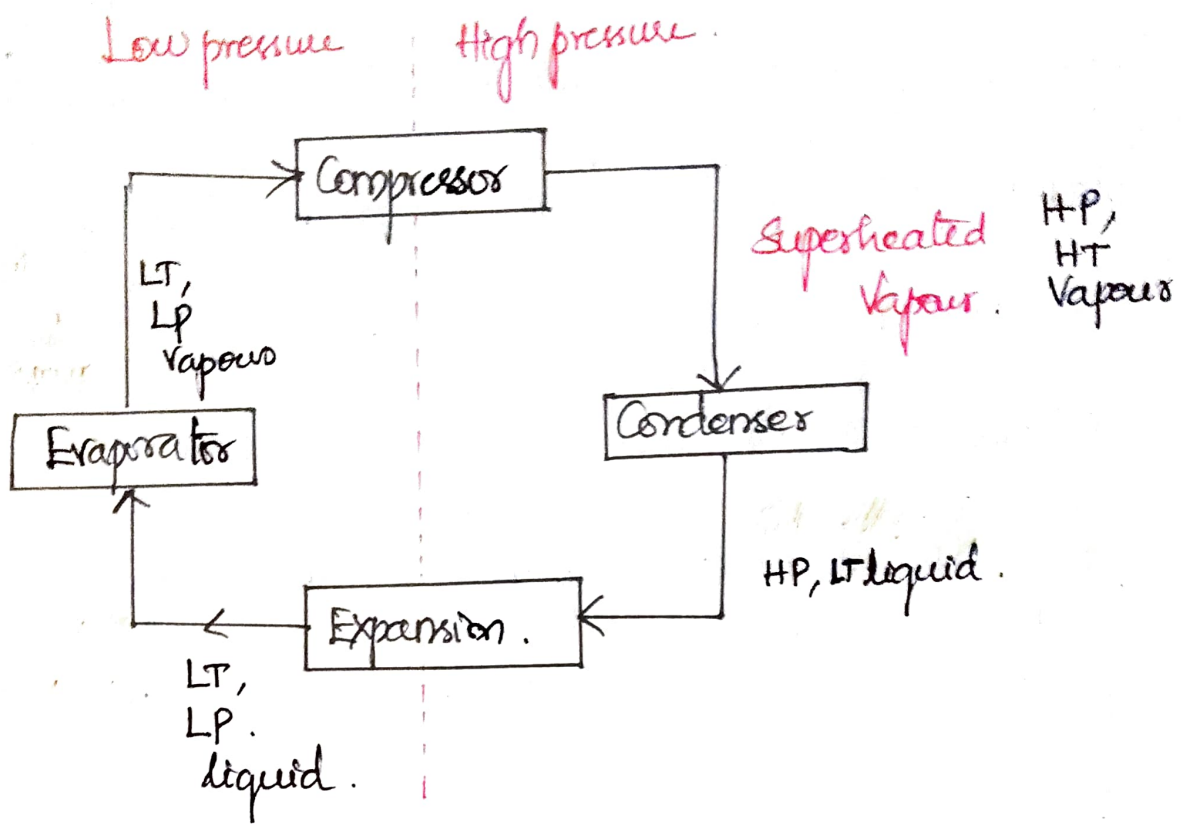 Low pressure
High pressure.
Compressor
Superheated
Vapour.
HP,
HT
Vapour
LT,
LP
vapour
Evaporator
Condenser
HP, LT liquid.
Expansion.
LT,
LP.
liquid.